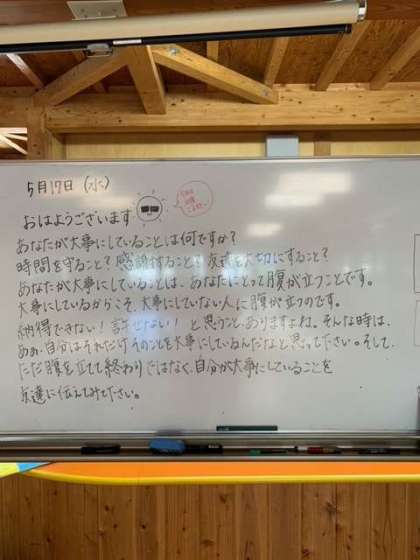 5月17日（水）
おはようございます
あなたが大事にしていることは何ですか？
時間を守ること？感謝すること？友達を大切にすること？
あなたが大事にしていることは、あなたにとって腹が立つことです。
大事にしているからこそ、大事にしていない人に腹が立つのです。
納得できない！許せない！と思うこと、ありますよね。そんな時は、
ああ、自分はそれだけそのことを大事にしているんだなと思って下さい。そして、
ただ腹を立てて終わりではなく、自分が大事にしていることを
友達に伝えてみて下さい。